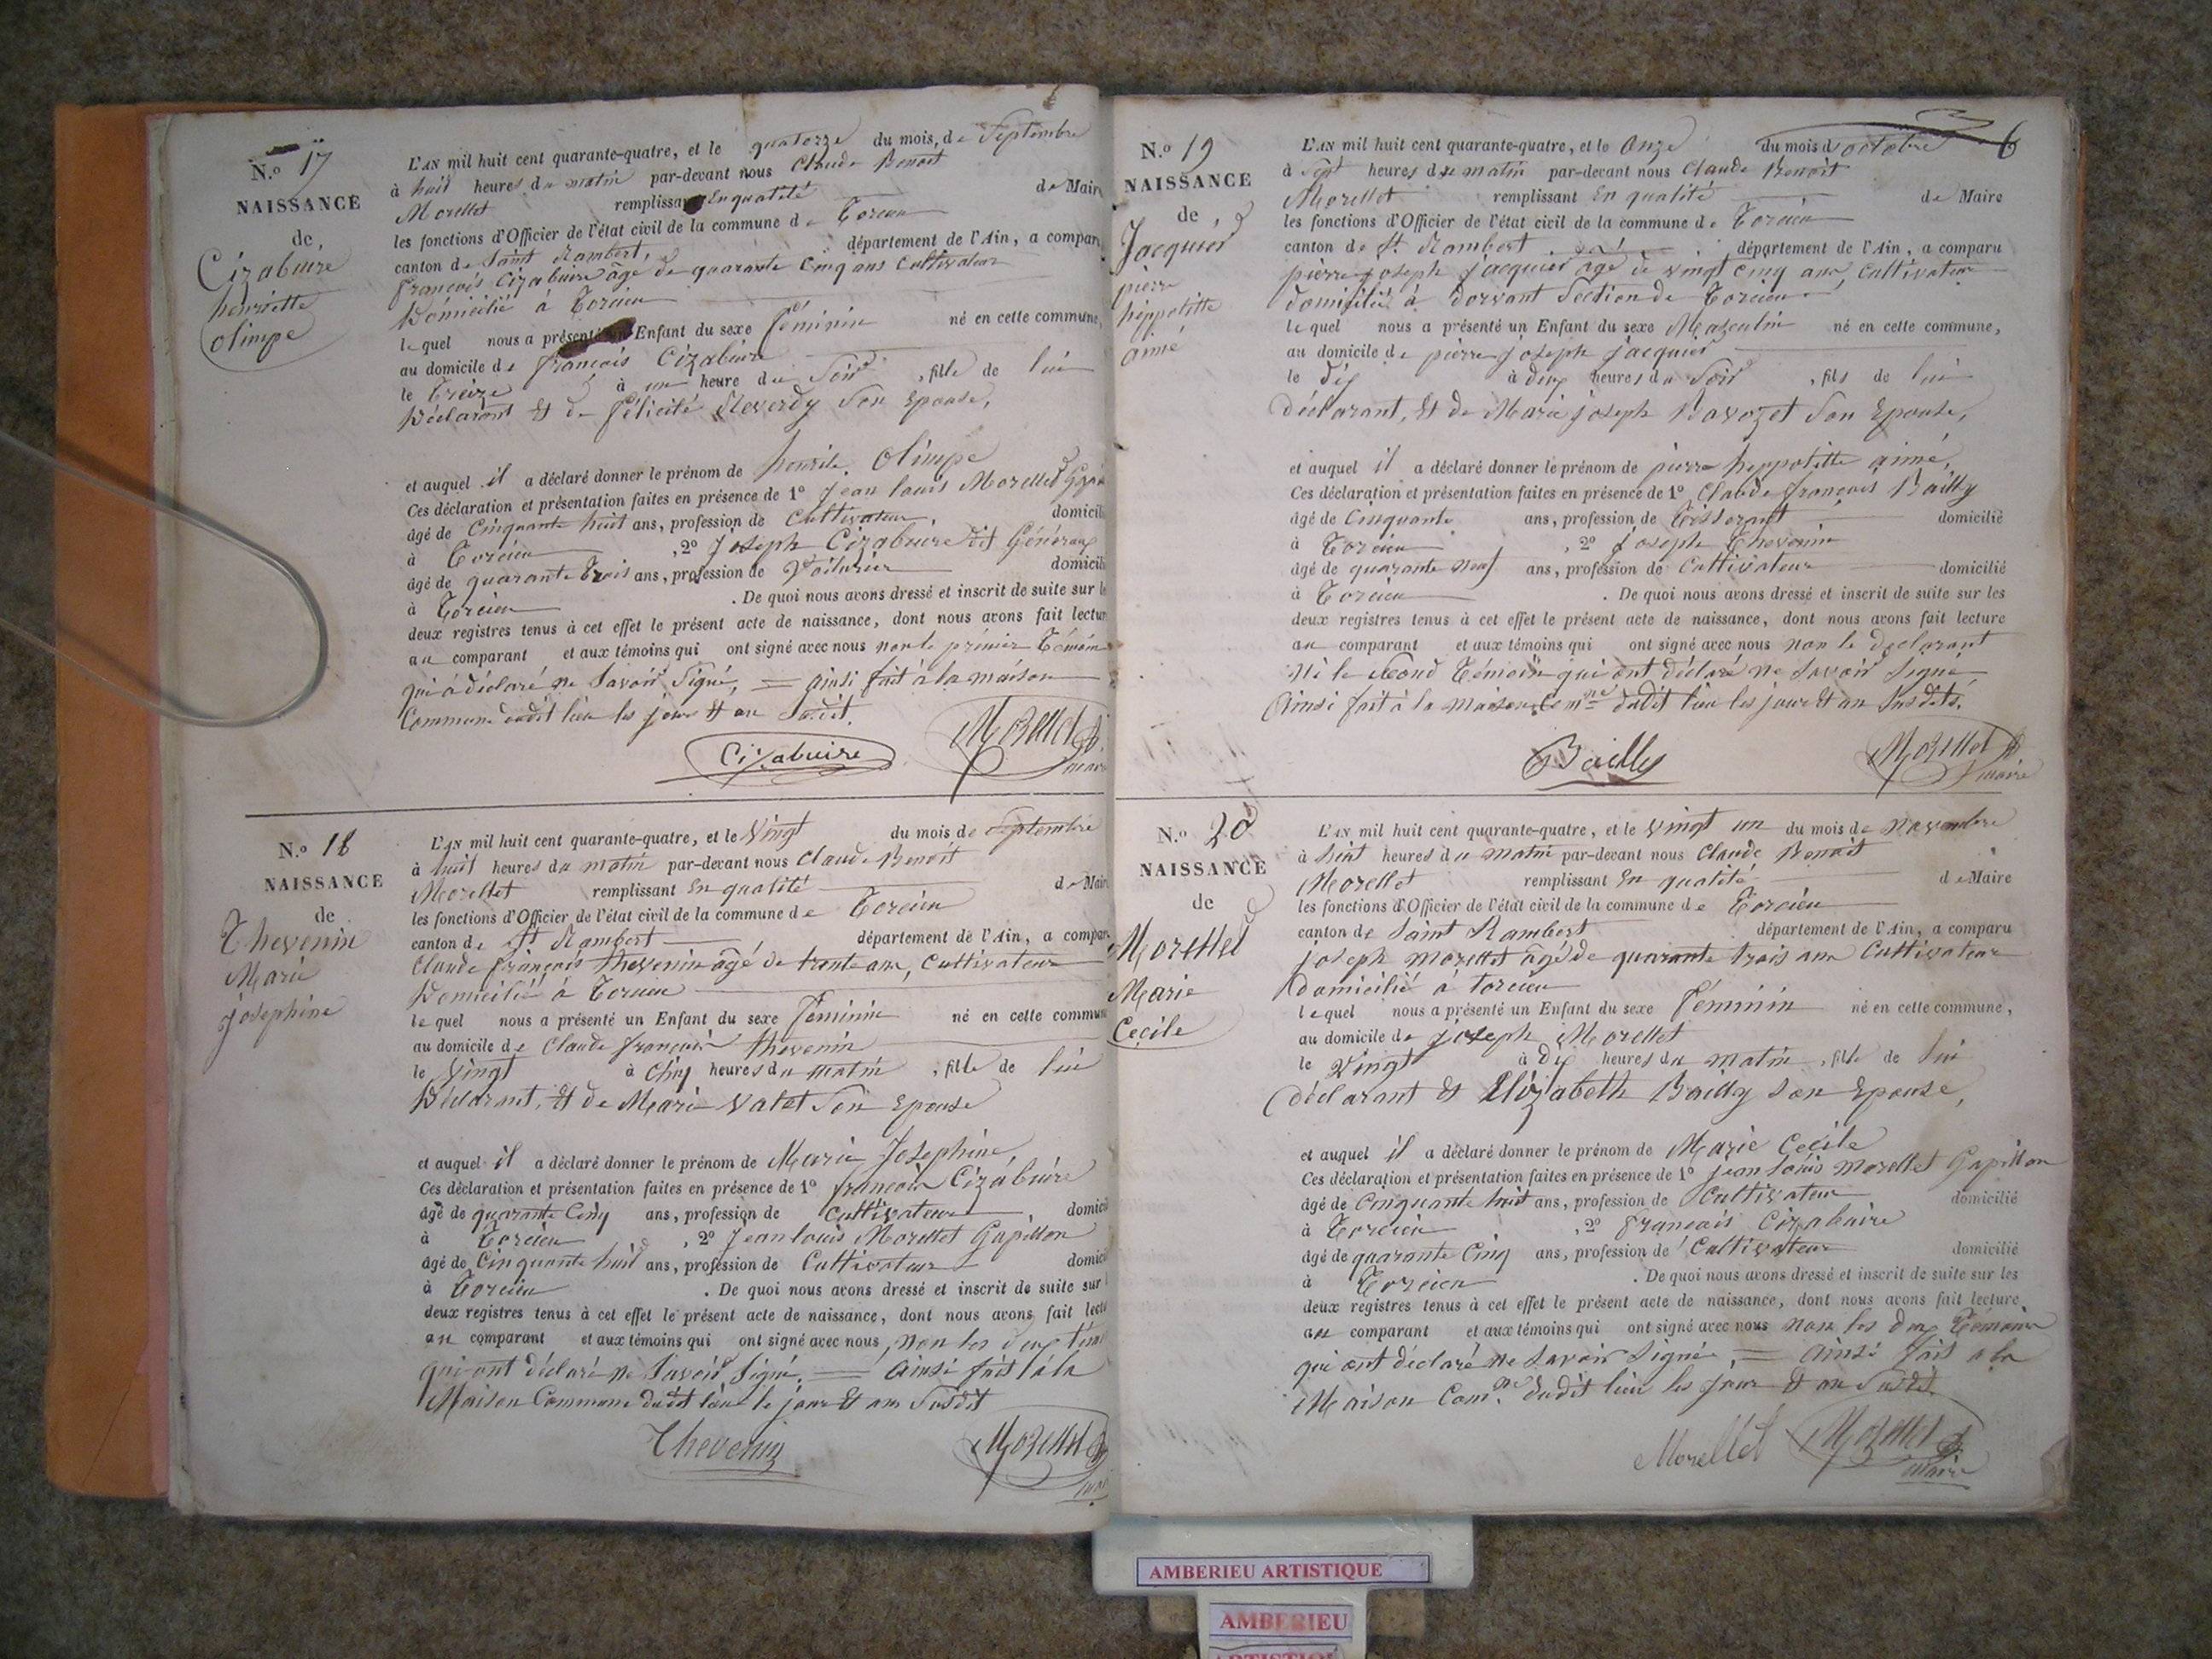 N.º 17
NAISSANCE
de
Cizabuire
henriette
olimpe
L'AN mil huit cent quarante-quatre, et le quatorze du mois de Septembre
à huit heures du matin par-devant nous Claude Benoit
Morellet remplissant En qualité de Maire
les fonctions d'Officier de l'état civil de la commune de Torcieu
canton de Saint Rambert, département de l'Ain, a comparu
françois Cizabuire âgé de quarante Cinq ans Cultivateur
Domicilié à Torcieu
lequel nous a présenté un Enfant du sexe féminin né en cette commune,
au domicile de françois Cizabuire
le treize à un heure du Soir, fille de lui
Déclarant et de félicité Reverdy Son Epouse,
et auquel il a déclaré donner le prénom de olimpe
Ces déclaration et présentation faites en présence de 1º Jean louis Morellet
âgé de Cinquante huit ans, profession de Cultivateur, domicil
à Torcieu, 2º Joseph Cizabuire dit Généraux
âgé de quarante trois ans, profession de Voiturier domicil
à Torcieu. De quoi nous avons dressé et inscrit de suite sur le
deux registres tenus à cet effet le présent acte de naissance, dont nous avons fait lectur
au comparant et aux témoins qui ont signé avec nous non le prémier Témoin
qui à déclaré ne Savoir Signé, = ainsi fait à la maison
Commune dudit lieu les jour et an Susdit.
Cizabuire Morellet
maire
N.º 18
NAISSANCE
de
Thevenin
Marie
josephine
L'AN mil huit cent quarante-quatre, et le Vingt du mois de Septembre
à huit heures du matin par-devant nous Claude Benoit
Morellet remplissant En qualité de Maire
les fonctions d'Officier de l'état civil de la commune de Torcieu
canton de St Rambert département de l'Ain, a compar
Claude françois thevenin âgé de trente ans, Cultivateur
Domicilié à Torcieu
lequel nous a présenté un Enfant du sexe féminin né en cette commune
au domicile de Claude françois thevenin
le Vingt à Cinq heures du matin, fille de lui
Déclarant, et de Marie Valet Son Epouse
et auquel il a déclaré donner le prénom de Marie Josephine,
Ces déclaration et présentation faites en présence de 1º françois Cizabuire
âgé de quarante Cinq ans, profession de Cultivateur, domicil
à Torcieu, 2º Jean louis Morellet Gapillon
âgé de Cinquante huit ans, profession de Cultivateur domici
à Torcieu. De quoi nous avons dressé et inscrit de suite sur
deux registres tenus à cet effet le présent acte de naissance, dont nous avons fait lectu
au comparant et aux témoins qui ont signé avec nous non les deux tém
qui ont déclaré ne Savoir Signé. = ainsi fait à la
Maison Commune dudit lieu le jour et an Susdit
Thevenin Morellet
N.º 19
NAISSANCE
de
Jacquier
pierre
hippolitte
aimé
6
L'AN mil huit cent quarante-quatre, et le Onze du mois d'octobre
à Sept heures du matin par-devant nous Claude Benoit
Morellet remplissant En qualité de Maire
les fonctions d'Officier de l'état civil de la commune de Torcieu
canton de St Rambert département de l'Ain, a comparu
pierre joseph jacquier âgé de vingt cinq ans, cultivateur
domicilié à dorvant Section de Torcieu
lequel nous a présenté un Enfant du sexe Masculin né en cette commune,
au domicile de pierre joseph jacquier
le dix à deux heures du Soir, fils de lui
déclarant, et de Marie joseph Bavozet Son Epouse,
et auquel il a déclaré donner le prénom de pierre heppolitte aimé,
Ces déclaration et présentation faites en présence de 1º Claude françois Bailly
âgé de Cinquante ans, profession de Tisserant domicilié
à Torcieu, 2º joseph Thevenin
âgé de quarante neuf ans, profession de Cultivateur domicilié
à Torcieu. De quoi nous avons dressé et inscrit de suite sur les
deux registres tenus à cet effet le présent acte de naissance, dont nous avons fait lecture
au comparant et aux témoins qui ont signé avec nous non le declarant
ni le Second Témoin qui ont déclaré ne Savoir Signé
Ainsi fait à la maison Comne dudit lieu les jour et an Susdits.
Bailly Morellet
maire
N.º 20
NAISSANCE
de
Morellet
Marie
Cecile
L'AN mil huit cent quarante-quatre, et le vingt un du mois de novembre
à huit heures du matin par-devant nous Claude Benoit
Morellet remplissant En qualité de Maire
les fonctions d'Officier de l'état civil de la commune de Torcieu
canton de Saint Rambert département de l'Ain, a comparu
joseph morellet âgé de quarante trois ans Cultivateur
domicilié à torcieu
lequel nous a présenté un Enfant du sexe féminin né en cette commune,
au domicile de joseph Morellet
le Vingt à dix heures du matin, fille de lui
déclarant et Elizabeth Bailly son Epouse,
et auquel il a déclaré donner le prénom de Marie Cecile
Ces déclaration et présentation faites en présence de 1º jean louis morellet Gapillon
âgé de Cinquante huit ans, profession de Cultivateur domicilié
à Torcieu, 2º françois Cizabuire
âgé de quarante Cinq ans, profession de Cultivateur domicilié
à Torcieu. De quoi nous avons dressé et inscrit de suite sur les
deux registres tenus à cet effet le présent acte de naissance, dont nous avons fait lecture
au comparant et aux témoins qui ont signé avec nous non les deux Témoins
qui ont déclaré ne Savoir Signée, = ainsi fait a la
Maison Comne dudit lieu les jour et an Susdit.
Morellet Morellet
maire
AMBERIEU ARTISTIQUE
AMBERIEU
ARTISTIQUE